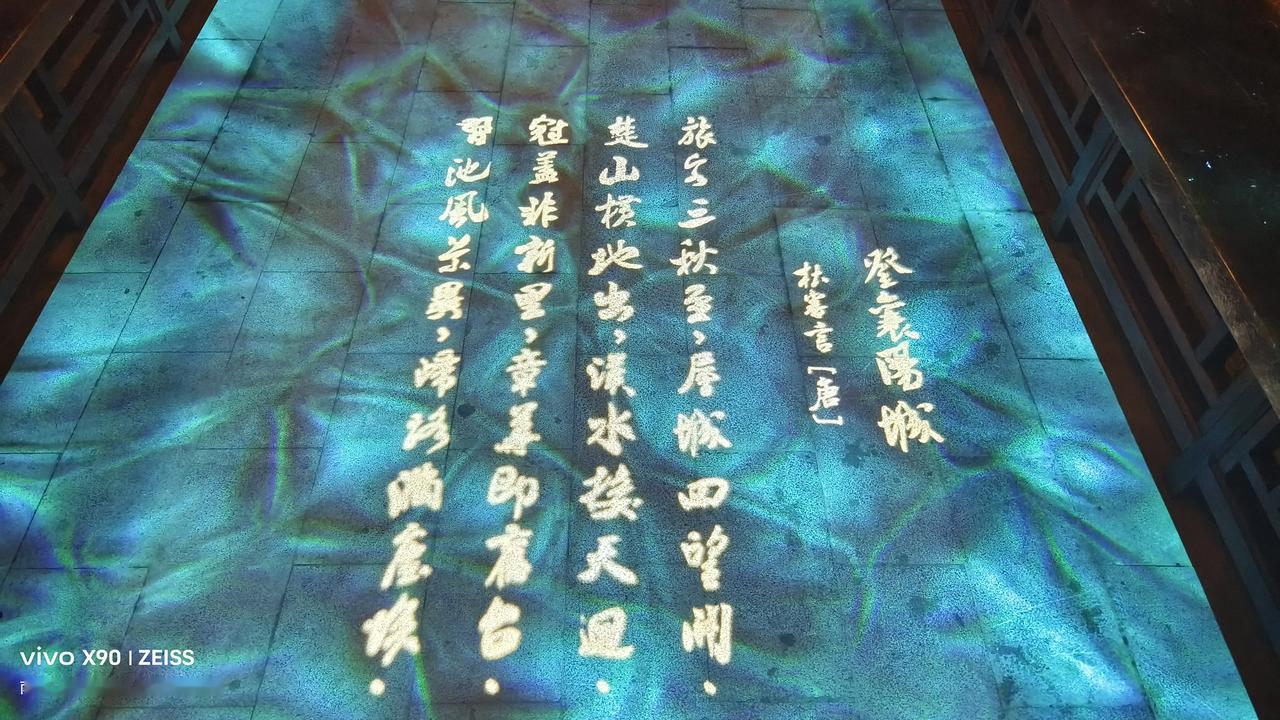 登襄陽城
杜審言［唐］
旅客三秋至，層城四望開。
楚山橫地出，漢水接天迴。
冠蓋非新里，章華即舊台。
習池風景異，歸路滿塵埃。
vivo X90 | ZEISS